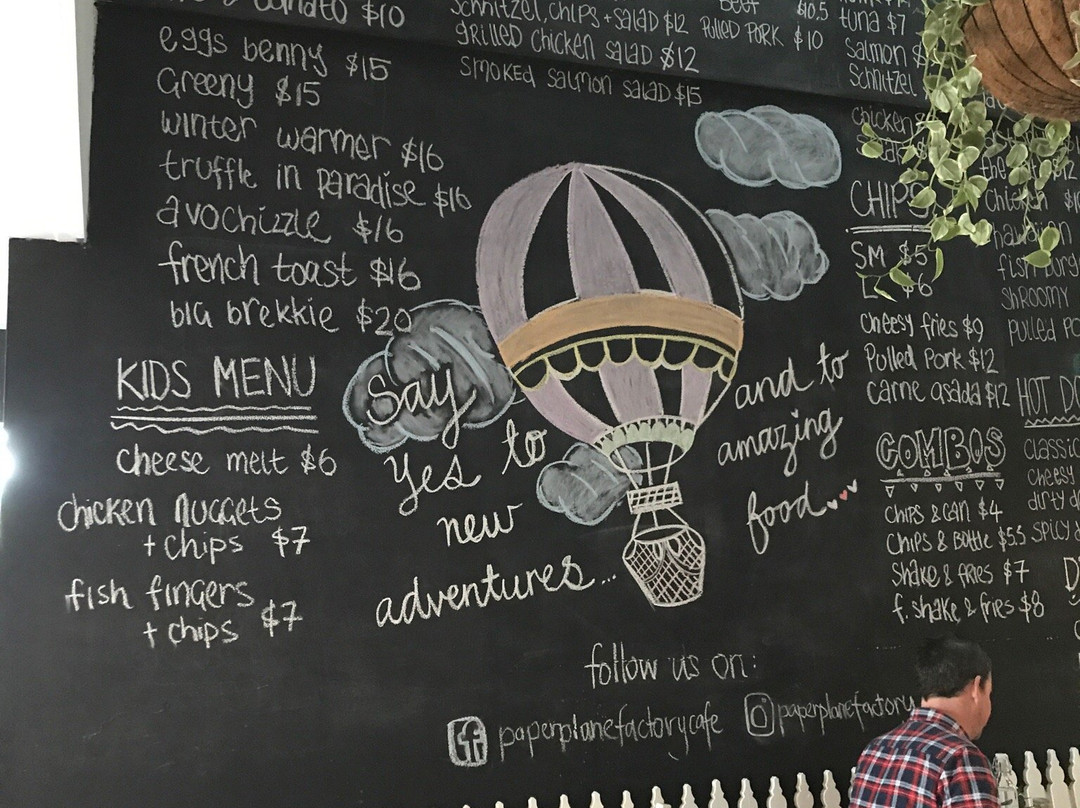 tomato $10
eggs benny $15
Greeny $15
winter warmer $16
truffle in paradise $16
avochizzle $16
french toast $16
big brekkie $20
KIDS MENU
cheese melt $6
chicken nuggets
+ chips $7
fish fingers
+ chips $7
schnitzel, chips + salad $12
grilled chicken salad $12
smoked salmon salad $15
Beef $10.5
Pulled Pork $10
tuna $7
Salmon $
Schnitzel
chicken $
Say
yes to
new
adventures...
and to
amazing
food...
follow us on:
f paperplanefactorycafe
paperplanefactory
CHIPS
SM $5
L $6
cheesy fries $9
Pulled Pork $12
carne asada $12
COMBOS
chips & can $4
chips & bottle $5.5
shake & fries $7
f. shake & fries $8
the $12
chicken $1
hawaiian
fish burg
shroomy
pulled po
HOT DO
classic
cheesy
dirty d
spicy
D